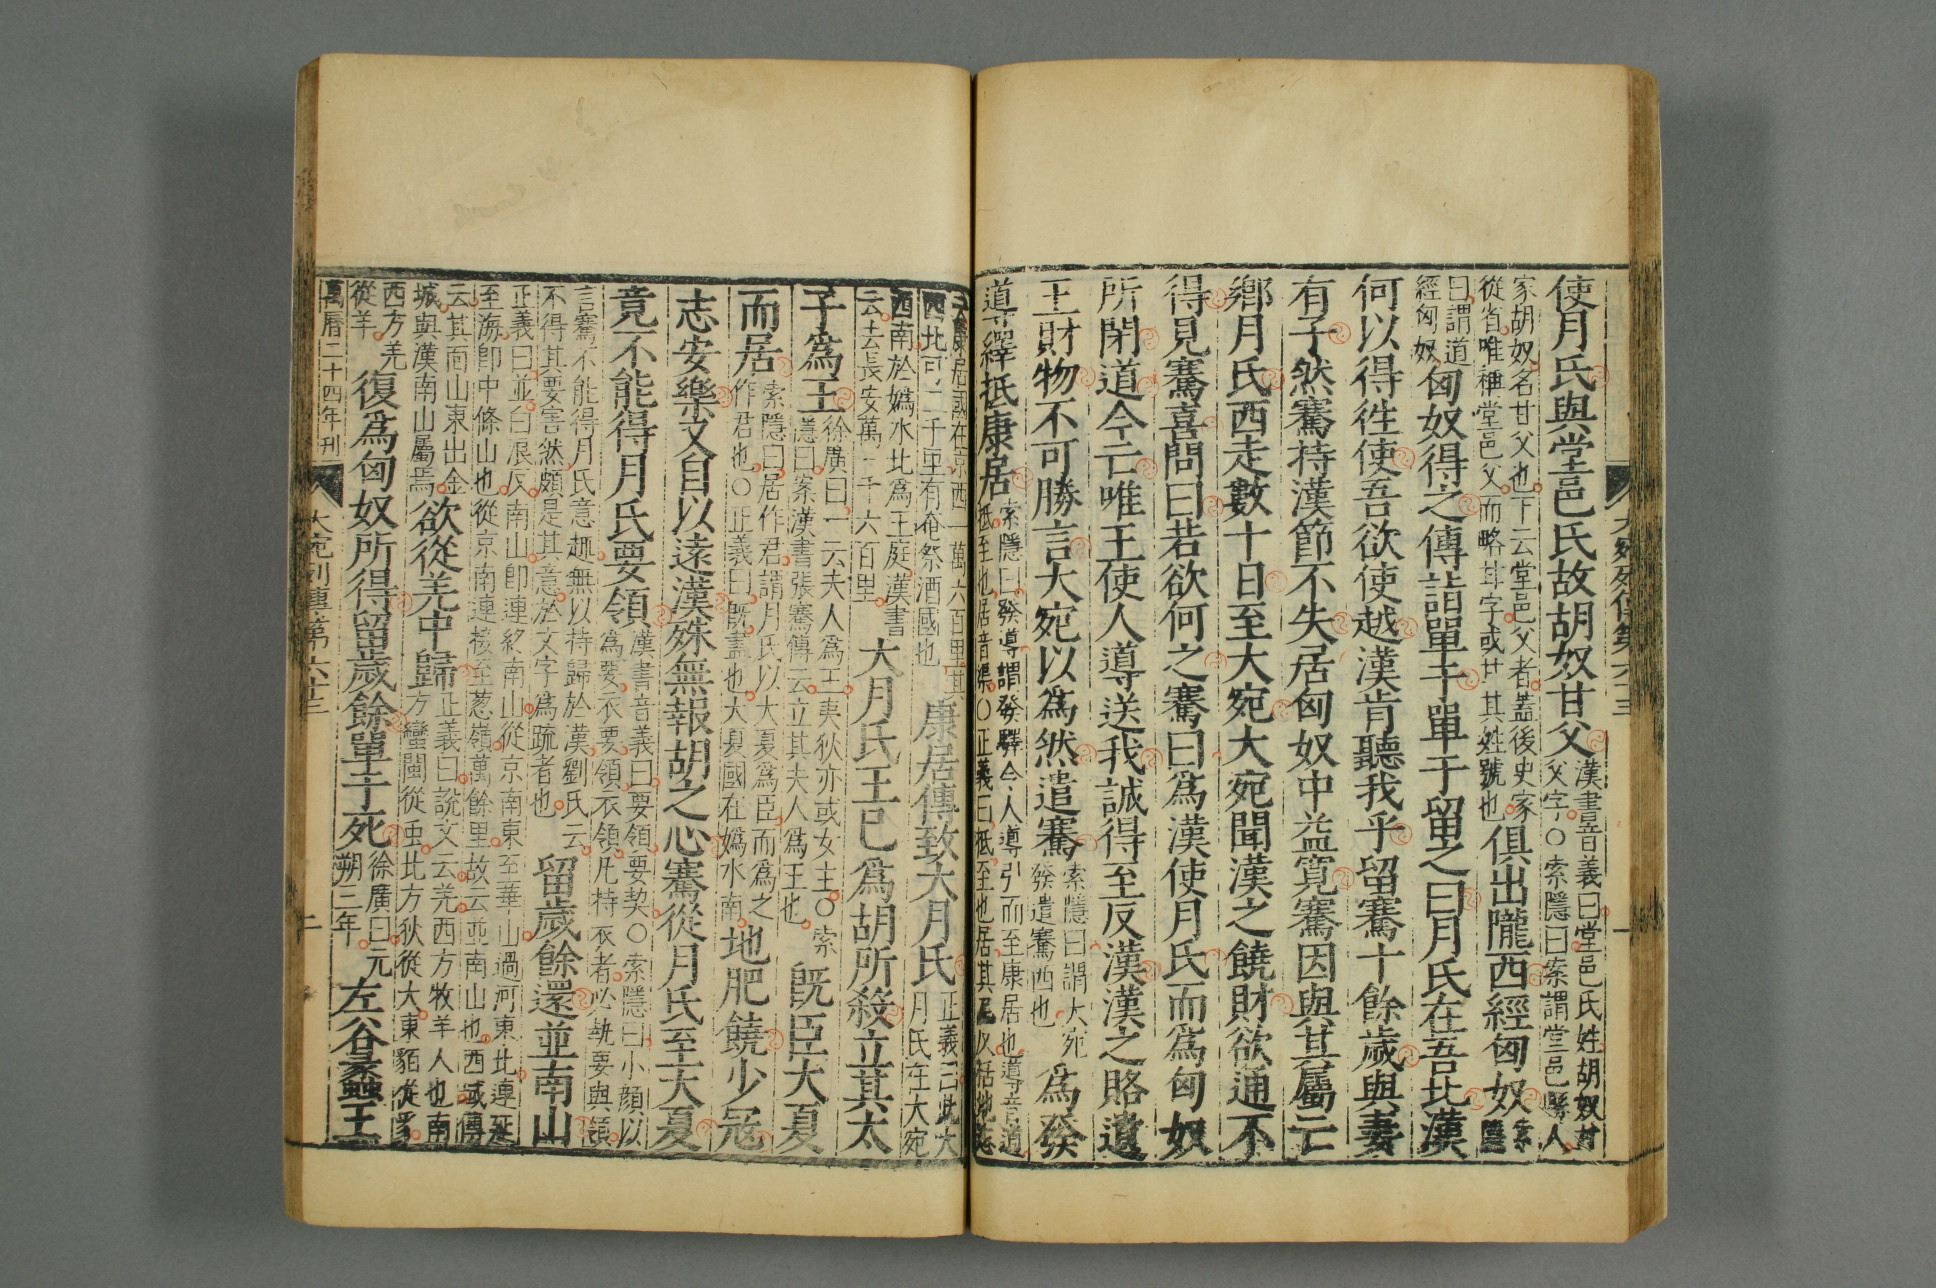 大宛列傳第六十三 一
使月氏與堂邑氏故胡奴甘父漢書音義曰堂邑氏姓胡奴甘父字○索隱曰案謂堂邑縣人
家胡奴名甘父也下云堂邑父者蓋後史家從省唯稱堂邑父而略甘字或甘其姓號也俱出隴西經匈奴索隱
曰謂道經匈奴匈奴得之傳詣單于單于留之曰月氏在吾北漢
何以得徃使吾欲使越漢肯聽我乎留騫十餘歲與妻
有子然騫持漢節不失居匈奴中益寬騫因與其屬亡
鄉月氏西走數十日至大宛大宛聞漢之饒財欲通不
得見騫喜問曰若欲何之騫曰爲漢使月氏而爲匈奴
所閉道今亡唯王使人導送我誠得至反漢漢之賂遺
王財物不可勝言大宛以爲然遣騫索隱曰謂大宛發遣騫西也爲發
導繹抵康居索隱曰發導謂發驛令人導引而至康居也導音道抵至也居音渠○正義曰抵至也居其尾以括地志
云康居國在京西一萬六百里其西北可二千里有奄祭酒國也康居傳致大月氏正義曰此大月氏在大宛
西南於嬀水北爲王庭漢書云去長安萬一千六百里大月氏王已爲胡所殺立其太
子爲王徐廣曰一云夫人爲王夷狄亦或女主○索隱曰案漢書張騫傳云立其夫人爲王也既臣大夏
而居索隱曰居作君謂月氏以大夏爲臣而爲之作君也○正義曰既盡也大夏國在嬀水南地肥饒少冦
志安樂又自以遠漢殊無報胡之心騫從月氏至大夏
竟不能得月氏要領漢書音義曰要領要契○索隱曰小顏以爲要衣要領衣領凡持衣者必執要與領
言騫不能得月氏意趣無以持歸於漢劉氏云不得其要害然頗是其意於文字爲疏者也留歲餘還並南山
正義曰並白浪反南山即連終南山從京南東至華山過河東北連延至海即中條山也從京南連接至葱嶺萬餘里故云並南山也西域傳
云其南山東出金城與漢南山屬焉欲從羌中歸正義曰說文云羌西方牧羊人也南方蠻閩從虫北方狄從犬東貊從豸
西方羌從羊復爲匈奴所得留歲餘單于死徐廣曰元朔三年左谷蠡王
萬曆二十四年刊 大宛列傳第六十三 二